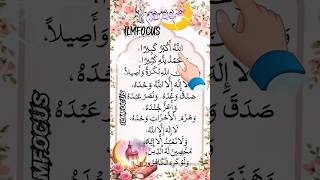 ILMFOCUS
اللَّهُ أَكْبَرُ كَبِيرًا،
كَثِيرًا،
بُكْرَةً وَأَصِيلاً
لَا إِلَهَ إِلَّا اللَّهُ وَحْدَهُ،
صَدَقَ وَعْدَهُ، وَنَصَرَ عَبْدَهُ
وَأَعَزَّ جُنْدَهُ
وَهَزَمَ الْأَحْزَابَ وَحْدَهُ،
لَا إِلَهَ إِلَّا اللَّهُ
وَلَا نَعْبُدُ إِلَّا إِيَّاهُ
مُخْلِصِينَ لَهُ الدِّينَ
ILMFOCUS
ILMFOCUS
ILMFOCUS